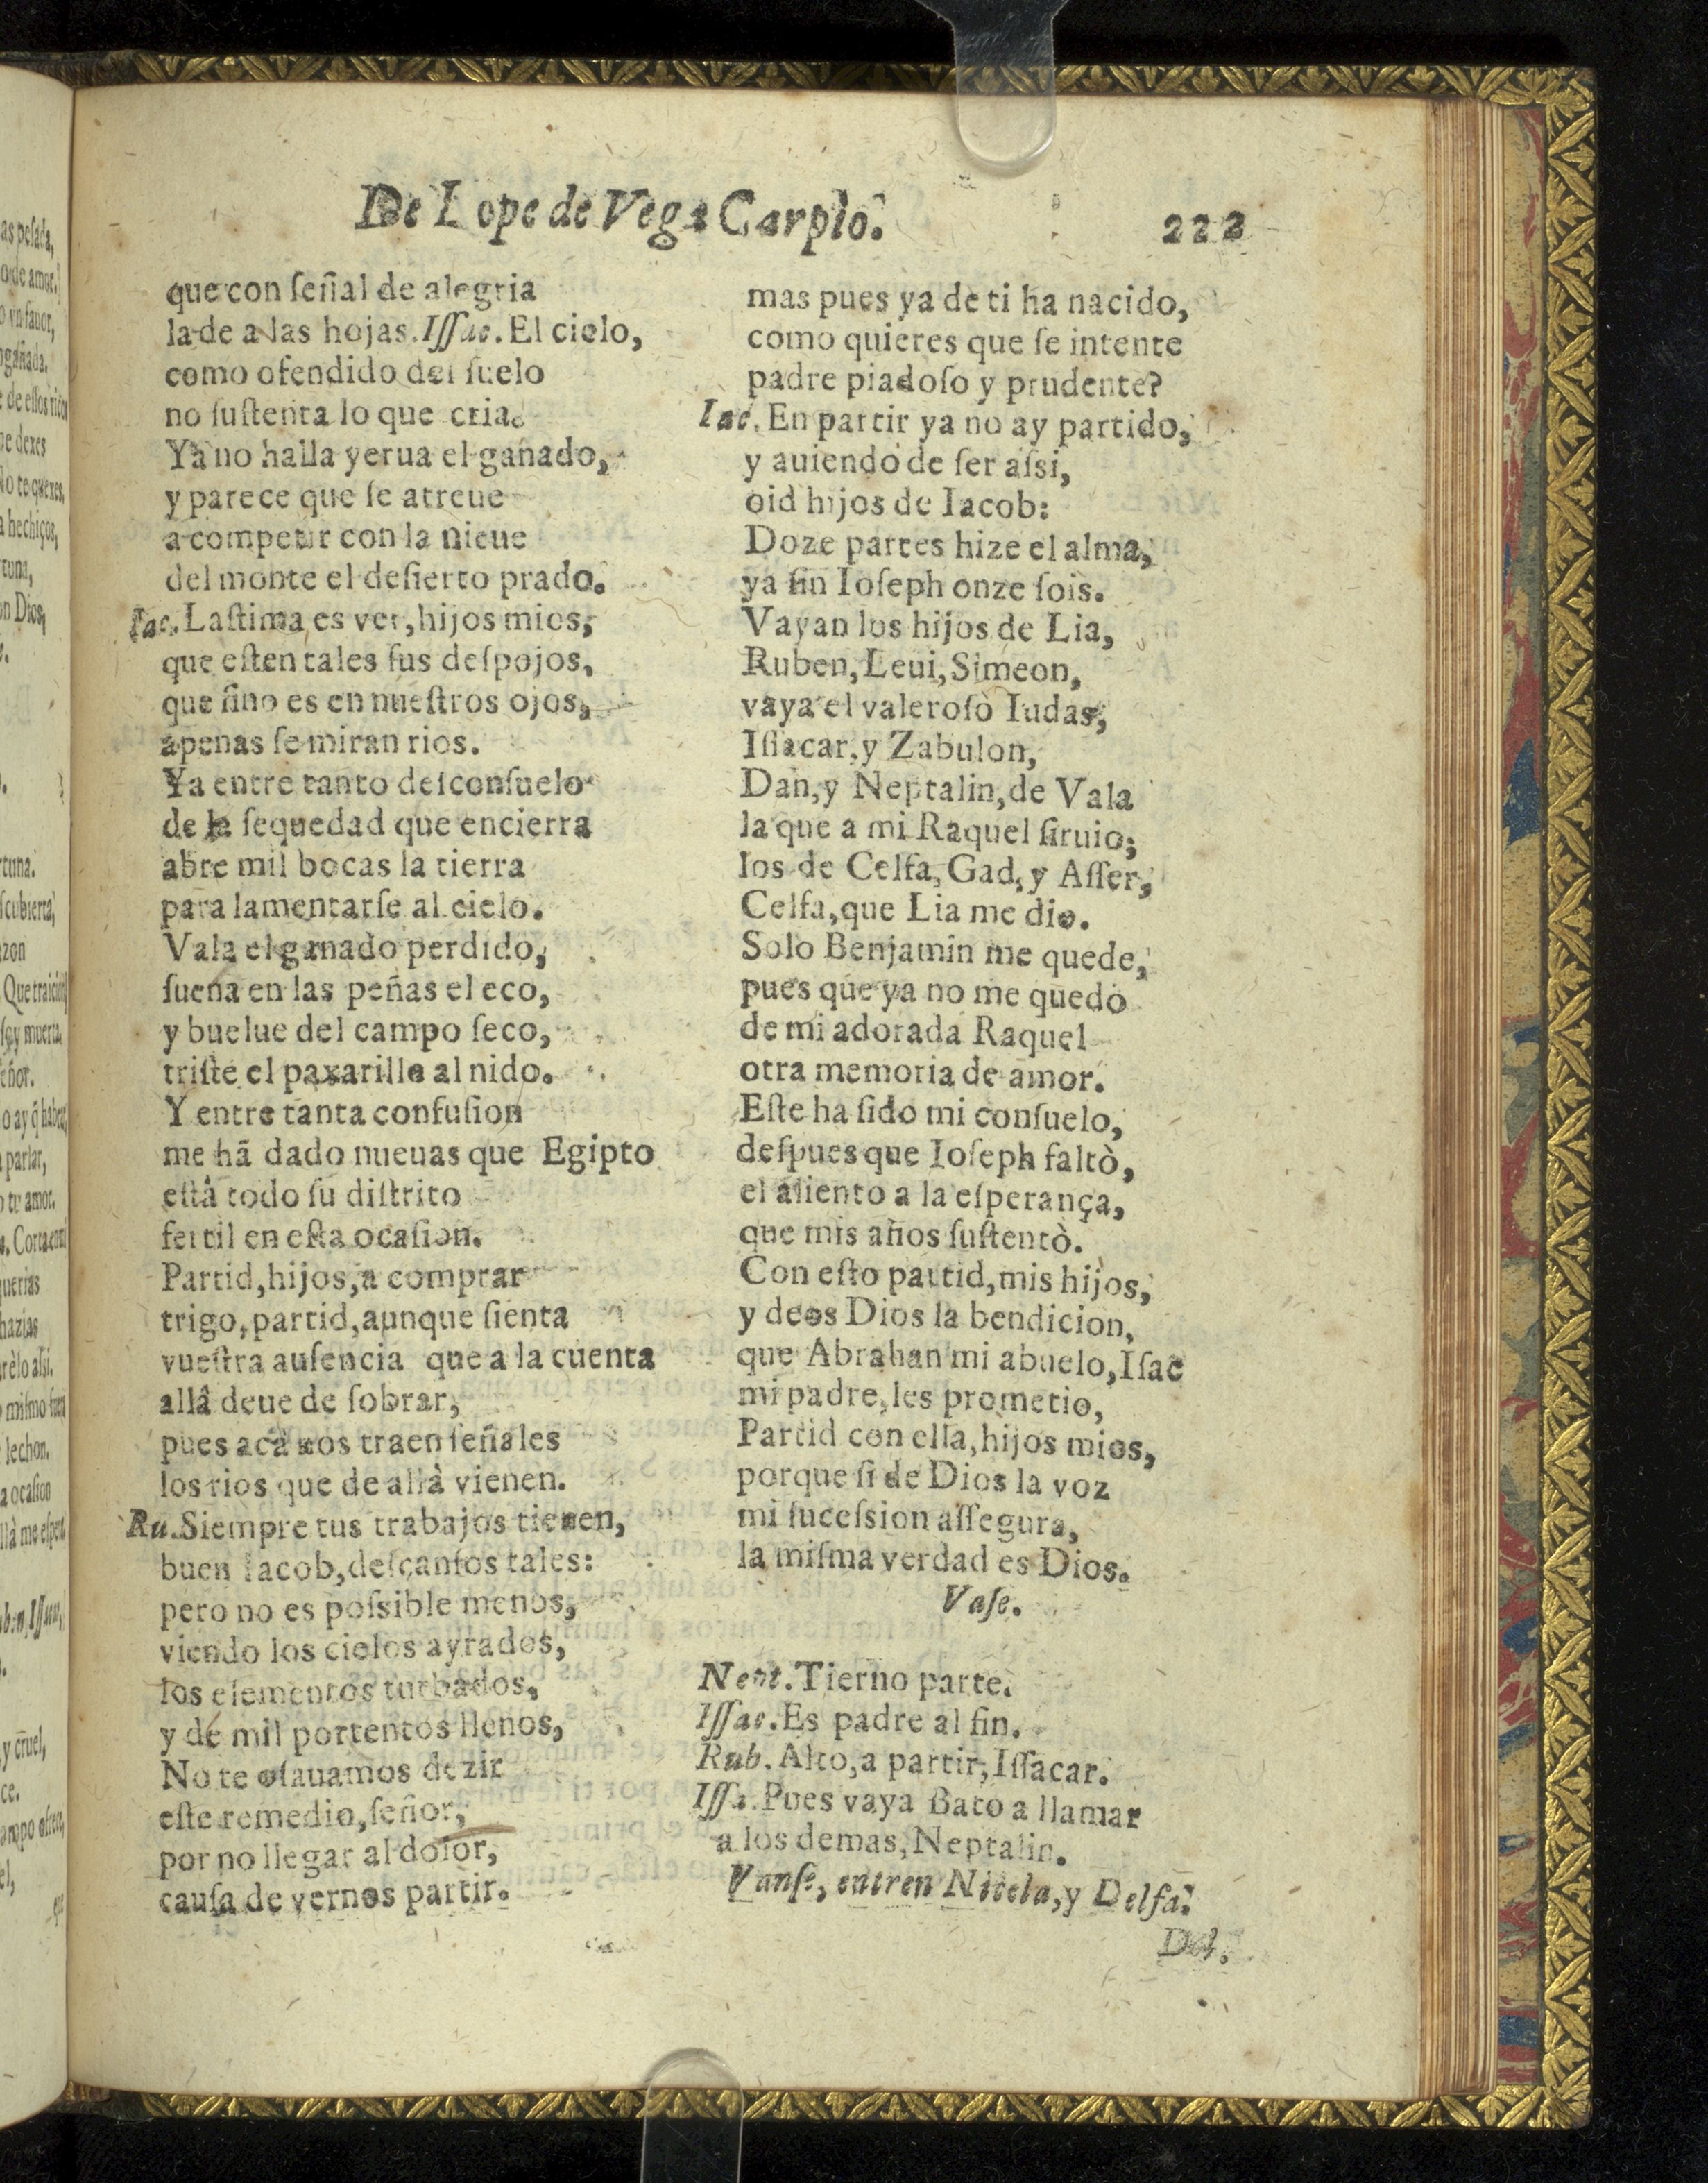 De Lope de Vega Carpio.
222
que con ſeñal de alegria
la de a las hojas. Iſſac. El cielo,
como ofendido del ſuelo
no ſuſtenta lo que cria.
Ya no halla yerua el ganado,
y parece que ſe atreue
a competir con la nieue
del monte el deſierto prado.
Iac. Laſtima es ver, hijos mios,
que eſten tales ſus deſpojos,
que ſino es en nueſtros ojos,
apenas ſe miran rios.
Ya entre tanto deſconſuelo
de la ſequedad que encierra
abre mil bocas la tierra
para lamentarſe al cielo.
Vala el ganado perdido,
ſuena en las peñas el eco,
y buelue del campo ſeco,
triſte el paxarillo al nido.
Y entre tanta confuſion
me hã dado nueuas que Egipto
eſtà todo ſu diſtrito
fertil en eſta ocaſion.
Partid, hijos, a comprar
trigo, partid, aunque ſienta
vueſtra auſencia que a la cuenta
allà deue de ſobrar,
pues acà nos traen ſeñales
los rios que de allà vienen.
Ru. Siempre tus trabajos tienen,
buen Iacob, deſcanſos tales:
pero no es poſsible menos,
viendo los cielos ayrados,
los elementos turbados,
y de mil portentos llenos,
No te oſauamos dezir
eſte remedio, ſeñor,
por no llegar al dolor,
cauſa de vernos partir.
mas pues ya de ti ha nacido,
como quieres que ſe intente
padre piadoſo y prudente?
Iac. En partir ya no ay partido,
y auiendo de ſer aſsi,
oid hijos de Iacob:
Doze partes hize el alma,
ya ſin Ioſeph onze ſois.
Vayan los hijos de Lia,
Ruben, Leui, Simeon,
vaya el valeroſo Iudas,
Iſſacar, y Zabulon,
Dan, y Neptalin, de Vala
la que a mi Raquel ſiruio;
los de Celfa, Gad, y Aſſer,
Celfa, que Lia me dio.
Solo Benjamin me quede,
pues que ya no me quedò
de mi adorada Raquel
otra memoria de amor.
Eſte ha ſido mi conſuelo,
deſpues que Ioſeph faltò,
el aliento a la eſperança,
que mis años ſuſtentò.
Con eſto partid, mis hijos,
y deos Dios la bendicion,
que Abrahan mi abuelo, Iſac
mi padre, les prometio,
Partid con ella, hijos mios,
porque ſi de Dios la voz
mi ſuceſsion aſſegura,
la miſma verdad es Dios.
Vaſe.
Nept. Tierno parte.
Iſſac. Es padre al fin.
Rub. Alto, a partir, Iſſacar.
Iſſa. Pues vaya Bato a llamar
a los demas, Neptalin.
Vanſe, entren Nicela, y Delfa.
Del.